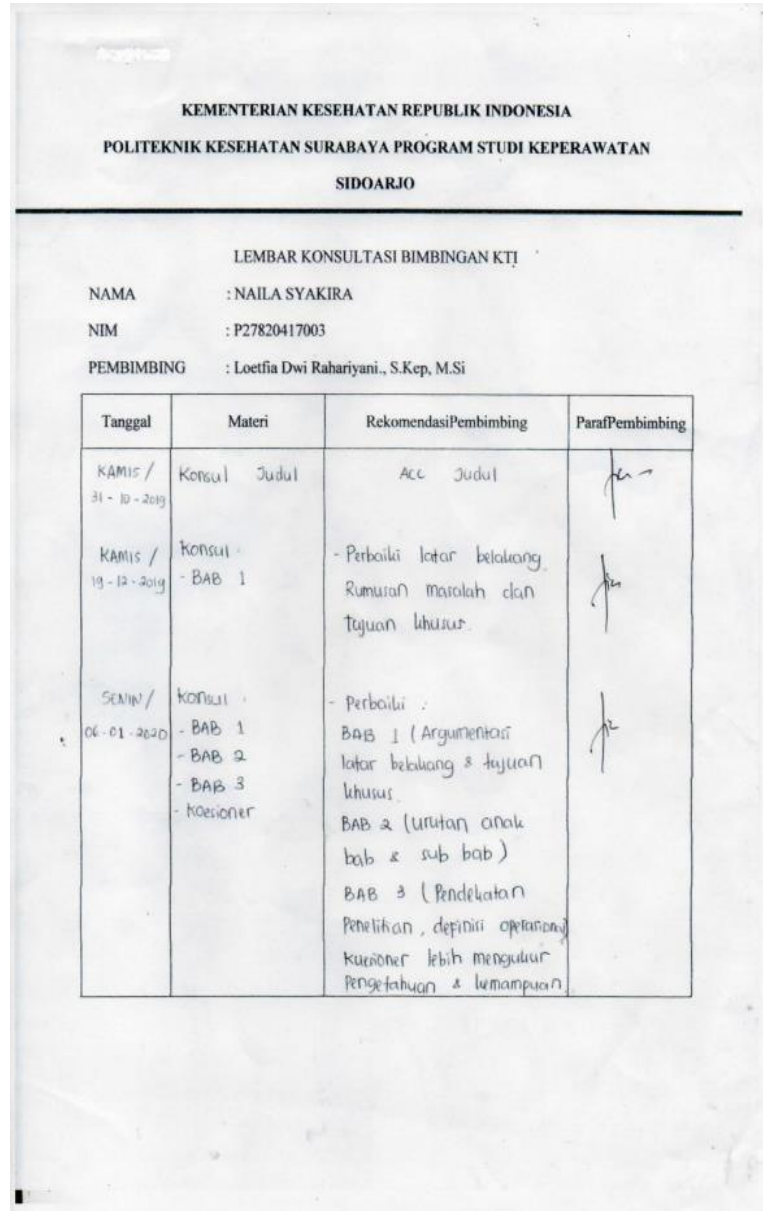 KEMENTERIAN KESEHATAN REPUBLIK INDONESIA
POLITEKNIK KESEHATAN SURABAYA PROGRAM STUDI KEPERAWATAN
SIDOARJO
LEMBAR KONSULTASI BIMBINGAN KTI
NAMA : NAILA SYAKIRA
NIM : P27820417003
PEMBIMBING : Loetfia Dwi Rahariyani., S.Kep, M.Si
Tanggal Materi RekomendasiPembimbing ParafPembimbing
KAMIS / Konsul Judul Acc Judul
31 - 10 - 2019
KAMIS / Konsul - Perbaiki latar belakang
19 - 12 - 2019 - BAB 1 Rumusan masalah dan
tujuan khusus.
SENIN / Konsul - Perbaiki :
06 - 01 - 2020 - BAB 1 BAB 1 (Argumentasi
- BAB 2 latar belakang & tujuan
- BAB 3 khusus
- Koesioner BAB 2 (urutan anak
bab & sub bab)
BAB 3 (Pendekatan
Penelitian, definisi operasional)
Kuesioner lebih mengukur
Pengetahuan & kemampuan